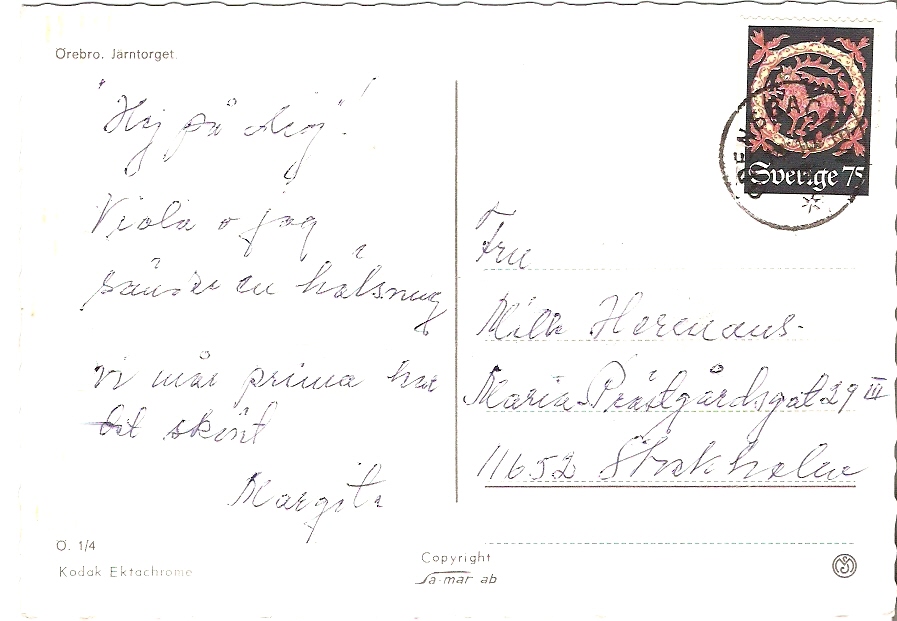 Örebro. Järntorget.
"Hej på dig"!
Viola o jag
sänder en hälsning
vi mår prima har
det skönt
Margit
Sverige 75
Fru
Hermans-
Maria Prästgårdsgat 29 III
11652 Stockholm
Ö. 1/4
Kodak Ektachrome
Copyright
Sa-mar ab